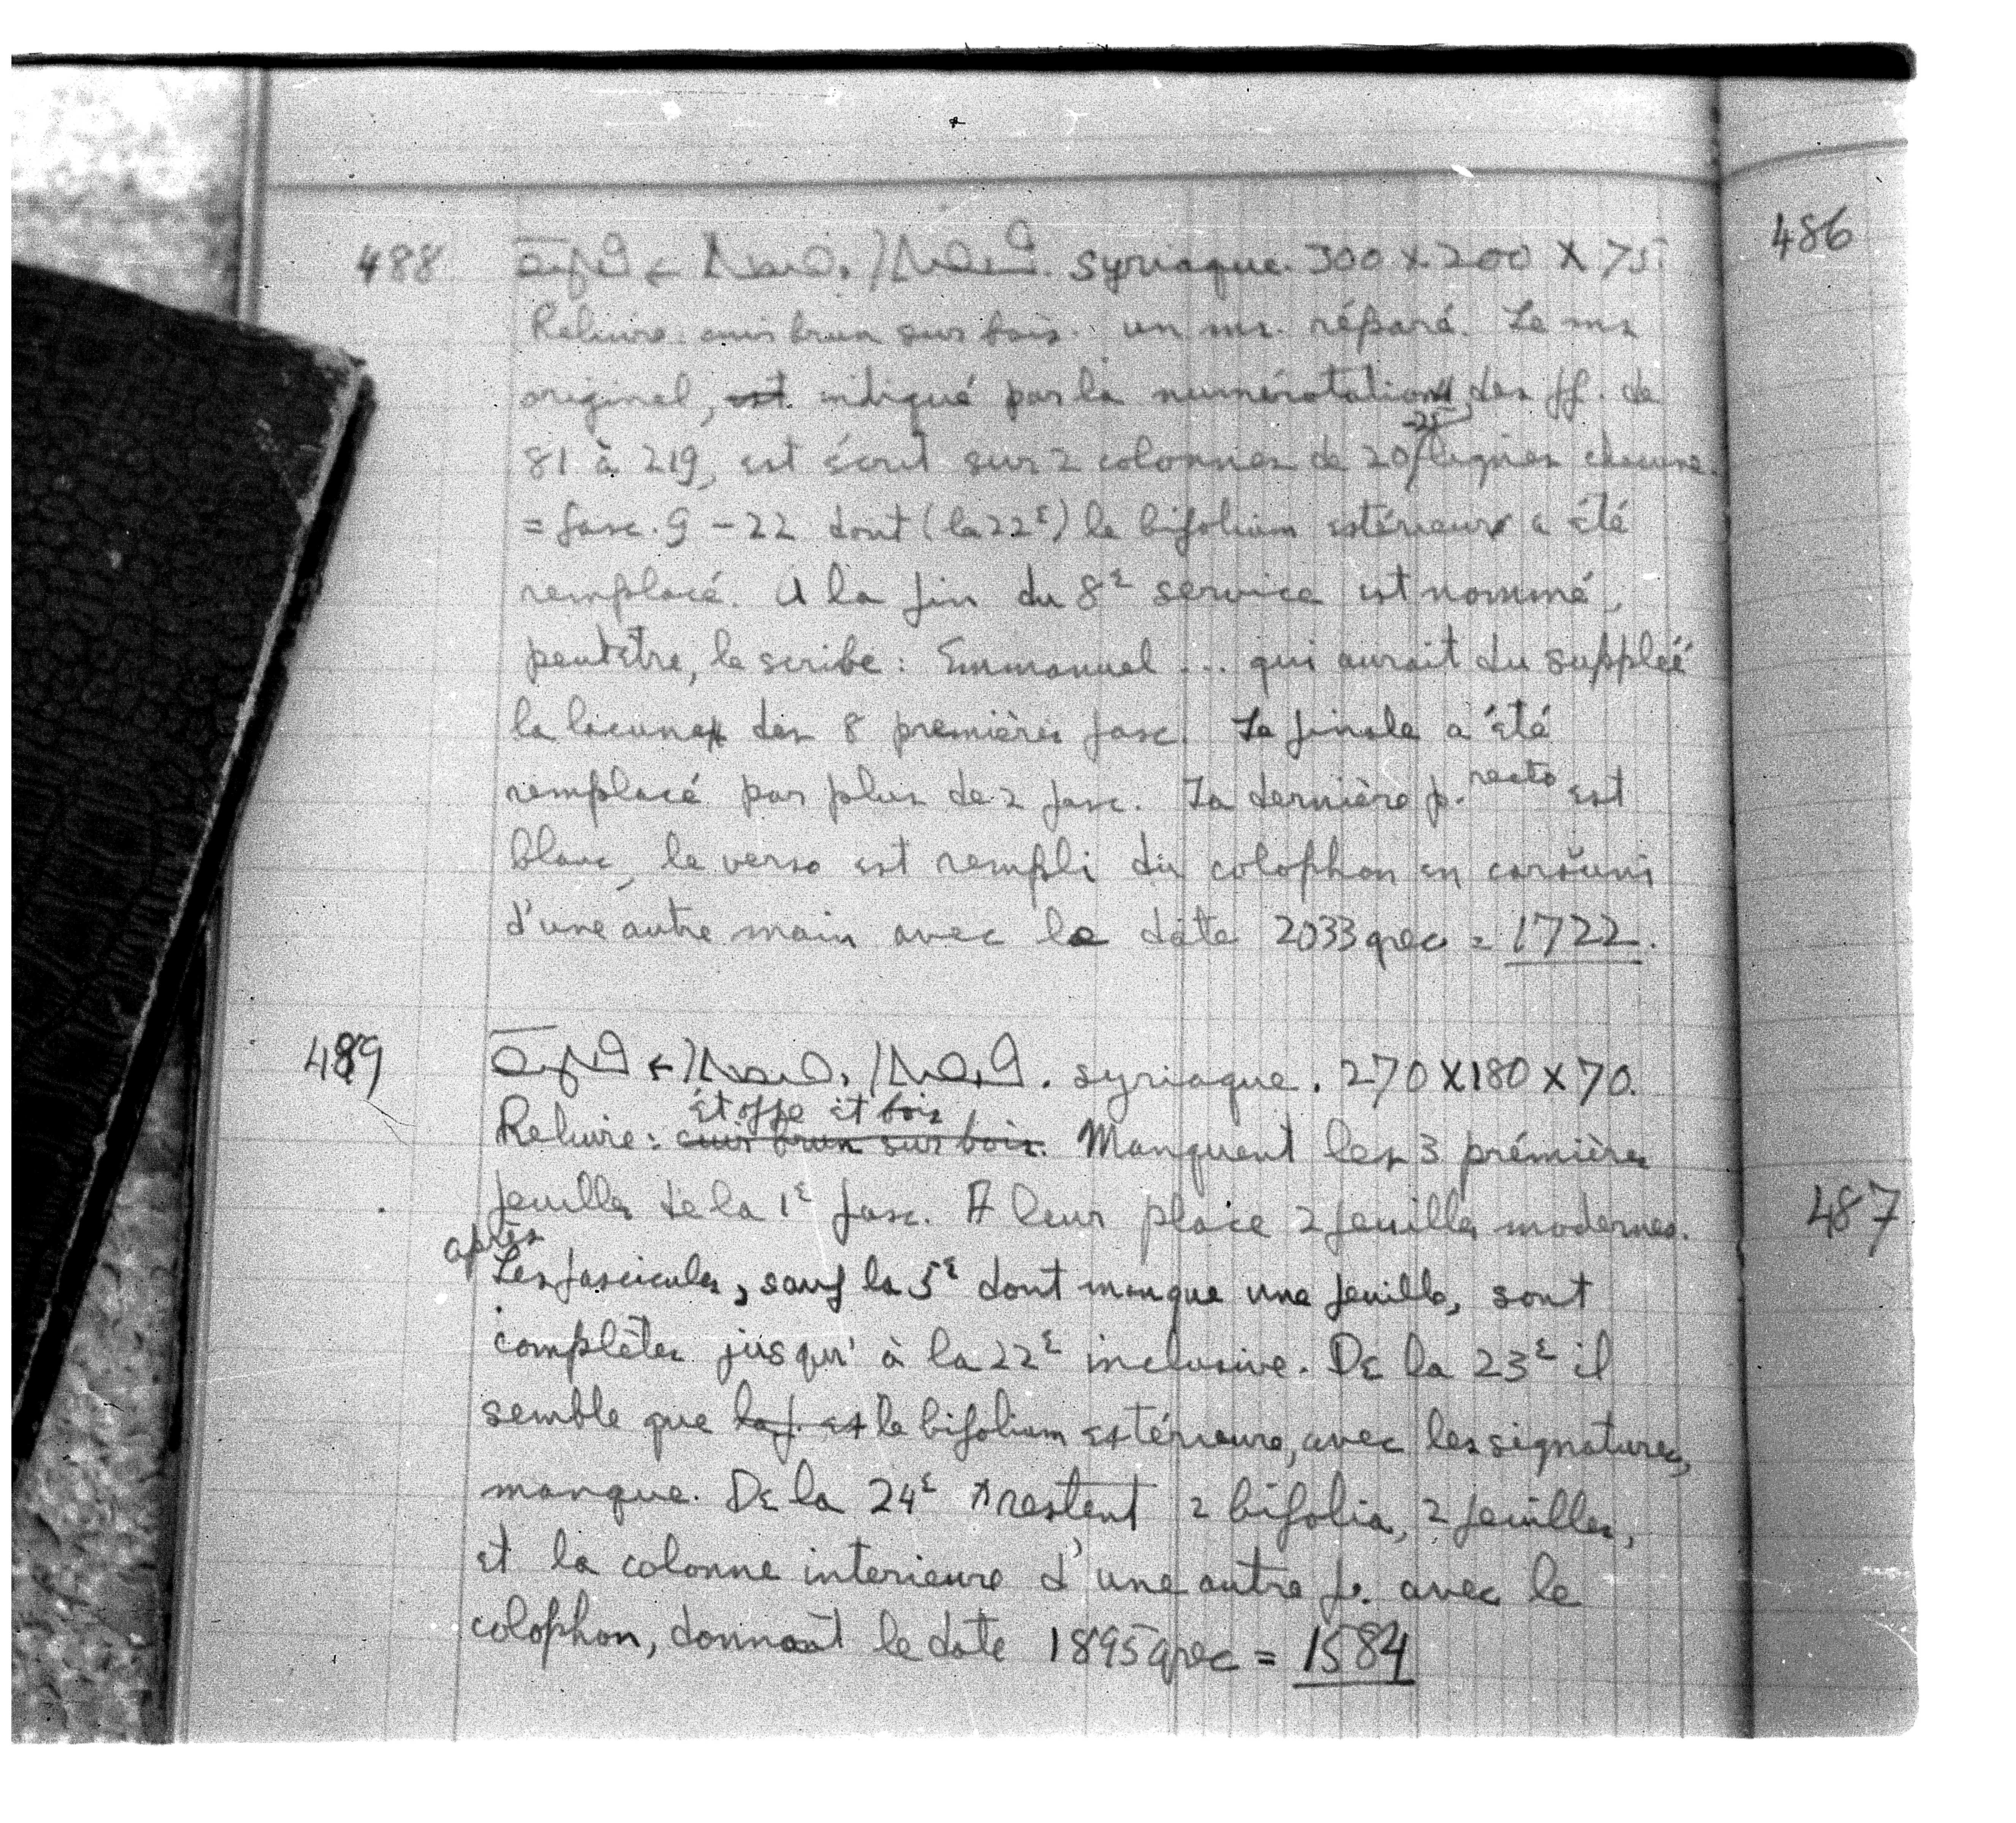 488 syriaque. 300 x 200 x 75.
Reliure: cuir brun sur bois. un ms. réparé. Le ms
original, est indiqué par la numérotation des ff. de
81 à 219, est écrit sur 2 colonnes de 20-25 lignes chacune.
= fasc. 9 - 22 dont (la 22e) le bifolium extérieur a été
remplacé. A la fin du 8e service est nommé,
peutêtre, le scribe: Emmanuel ... qui aurait du suppleé
la lacune des 8 premières fasc. La finale a été
remplacé par plus de 2 fasc. La dernière p. recto est
blanc, le verso est rempli du colophon en caršuni
d'une autre main avec le date 2033 grec = 1722.
489 syriaque. 270 x 180 x 70.
Reliure: cuir brun sur bois. étoffe et bois Manquent les 3 prémières
feuilles de la 1e fasc. A leur place 2 feuilles modernes.
après
Les fascicules, sauf la 5e dont manque une feuille, sont
complètes jusqu'à la 22e inclusive. De la 23e il
semble que la f. ex le bifolium extérieure, avec les signatures,
manque. De la 24e restent 2 bifolia, 2 feuilles,
et la colonne interieure d'une autre f. avec le
colophon, donnant le date 1895 grec = 1584
486
487